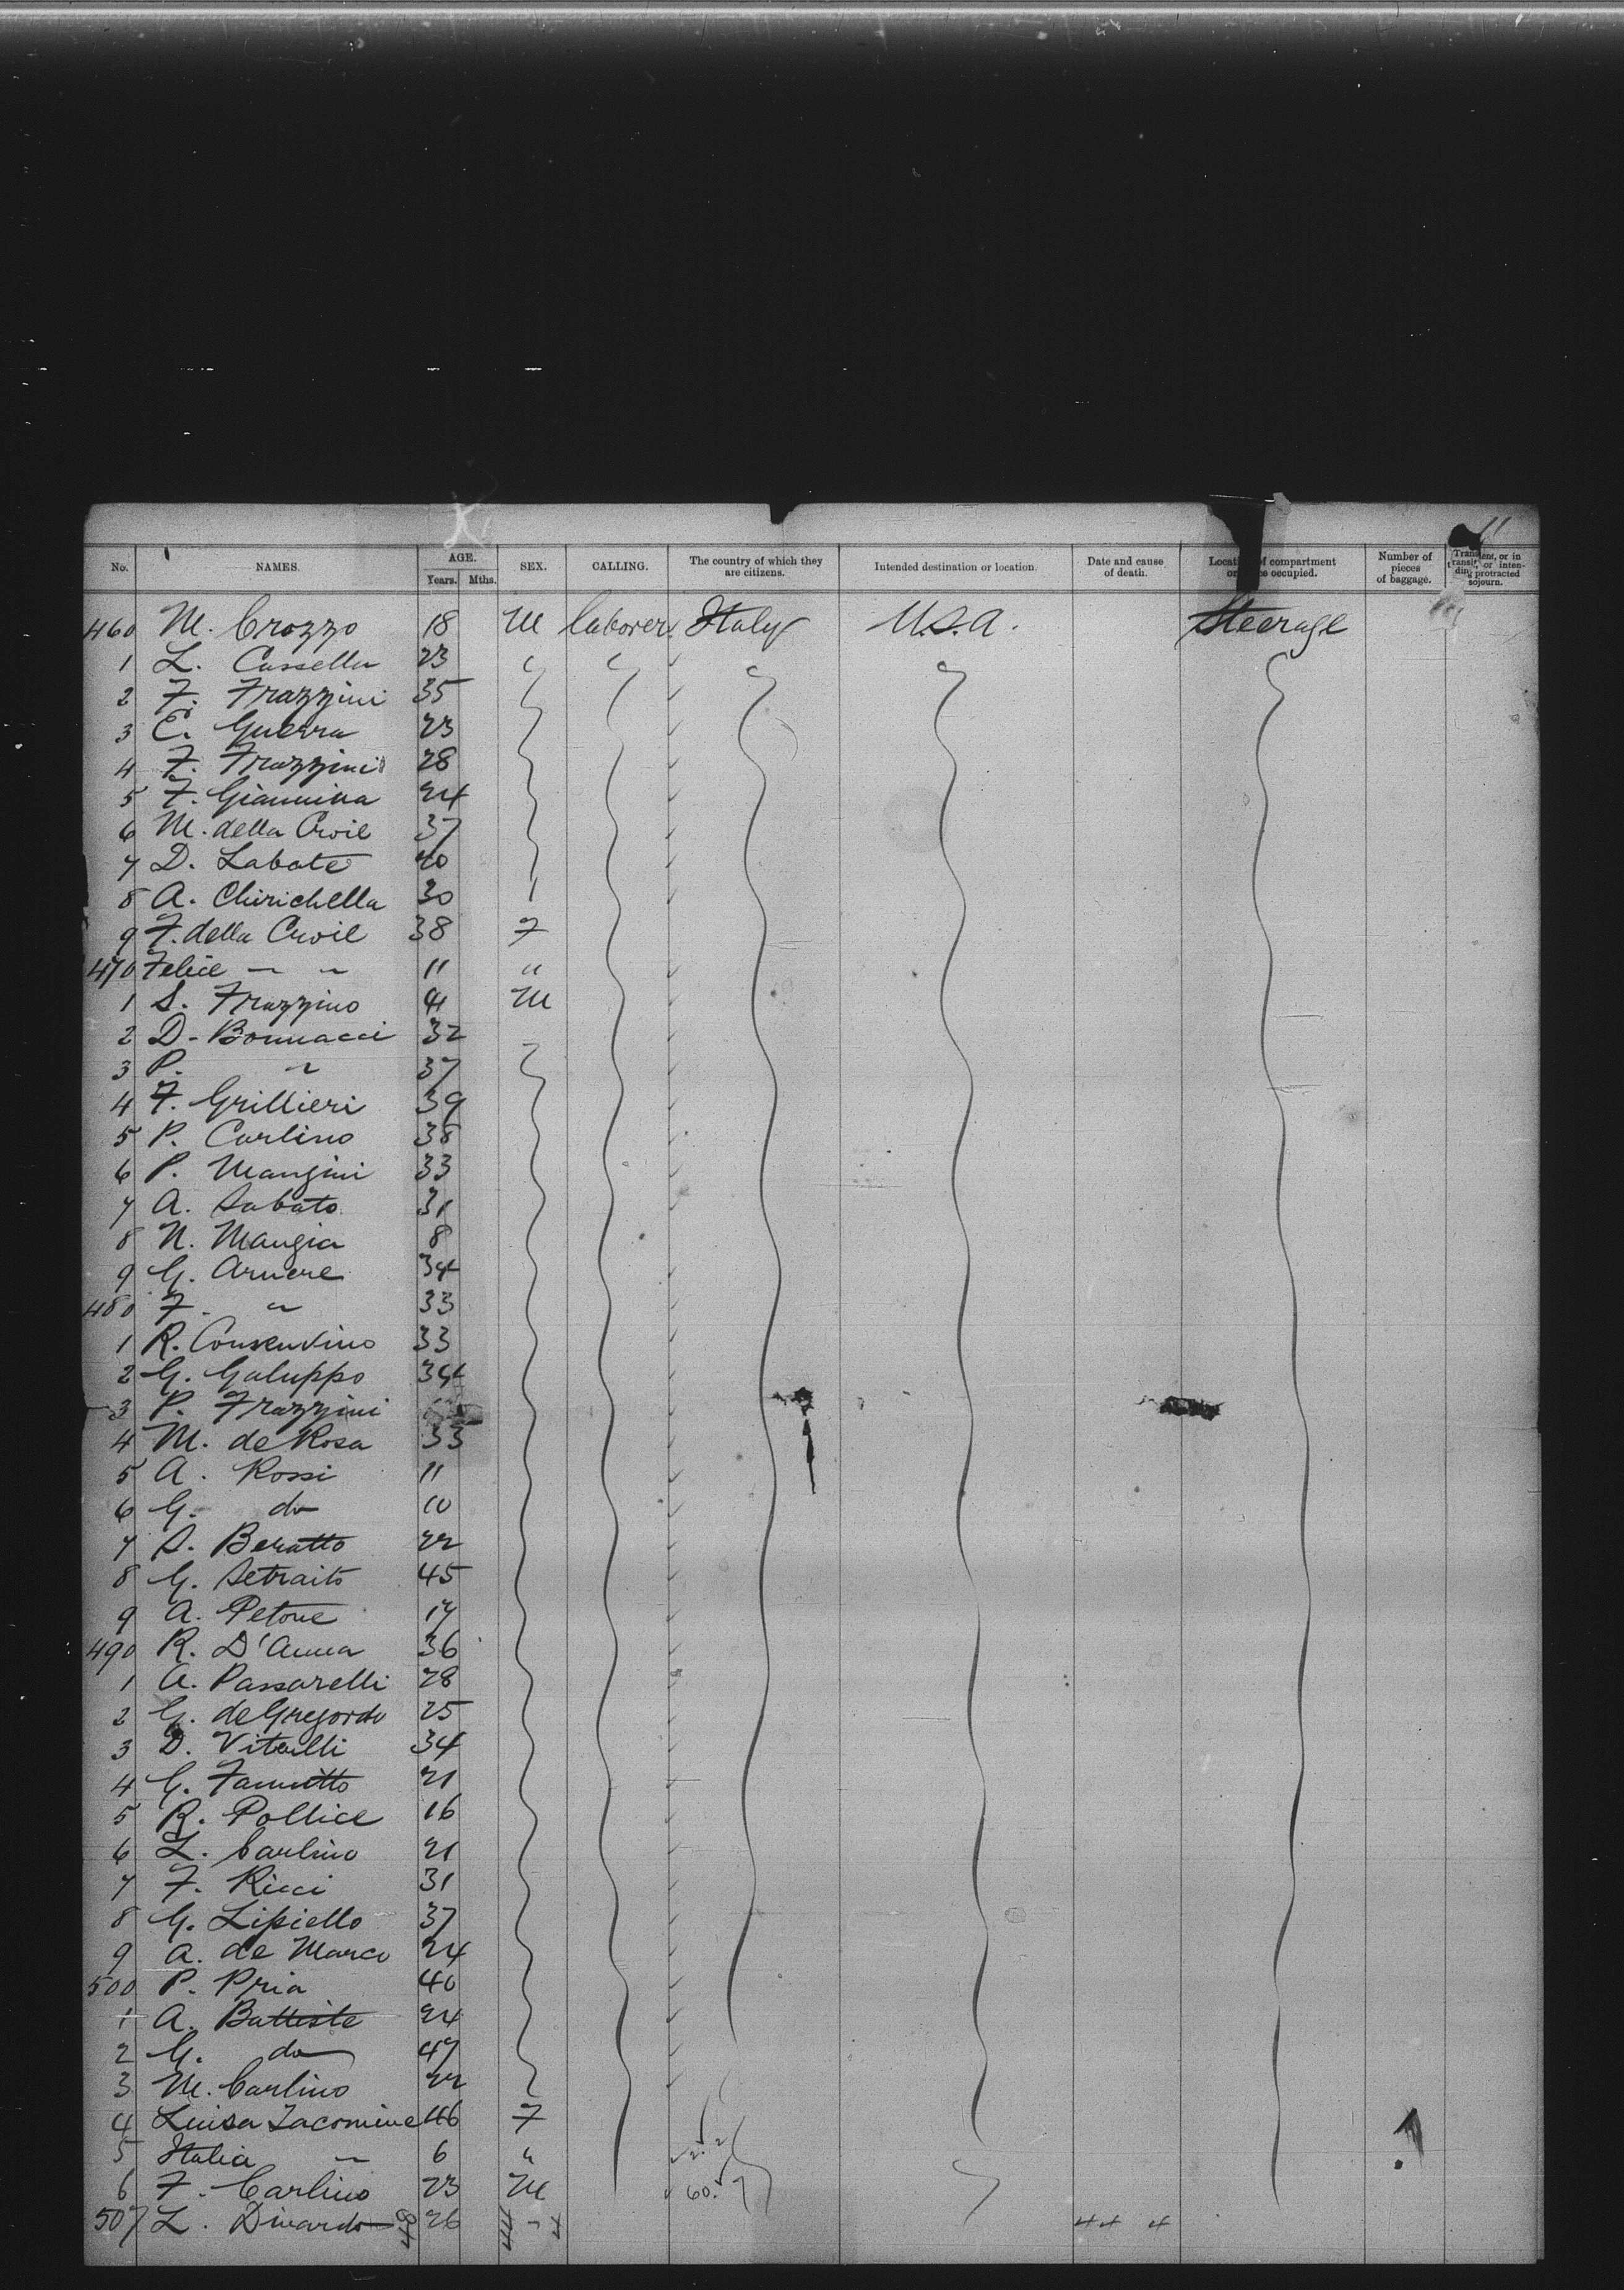 11
No. NAMES. AGE. Years. Mths. SEX. CALLING. The country of which they are citizens. Intended destination or location. Date and cause of death. Location of compartment or space occupied. Number of pieces of baggage. Transient, or in transit, or intending protracted sojourn.
460 M. Crozzo 18 M laborer Italy U.S.A. Steerage
1 L. Cassella 23
2 F. Frazzini 35
3 C. Guerra 23
4 F. Frazzini 28
5 F. Giannina 24
6 M. della Croil 37
7 D. Labate 20
8 A. Chirichella 30
9 F. della Croil 38 F
470 Felice " " 11 "
1 S. Frazzino 41 M
2 D. Bonnacci 32
3 P. " 37
4 F. Grillieri 39
5 P. Carlino 38
6 P. Mangini 33
7 A. Sabato 31
8 N. Mangia 8
9 G. Arnere 34
480 F. " 33
1 R. Consentino 33
2 G. Galuppo 34
3 P. Frazzini
4 M. de Rosa 33
5 A. Rossi 11
6 G. do 10
7 S. Beratto 22
8 G. Setraito 45
9 A. Petone 17
490 R. D'Anna 36
1 A. Passarelli 28
2 G. de Gregordo 25
3 D. Vitulli 34
4 G. Fannitto 21
5 R. Pollice 16
6 L. Carlino 21
7 F. Ricci 31
8 G. Lipiello 37
9 A. de Marco 24
500 P. Pria 40
1 A. Battiste 24
2 G. do 47
3 M. Carlino 22
4 Luisa Iacomine 46 F
5 Italia " 6 "
6 F. Carlino 23 M 60.
507 L. Dinardo 26 " 44 4